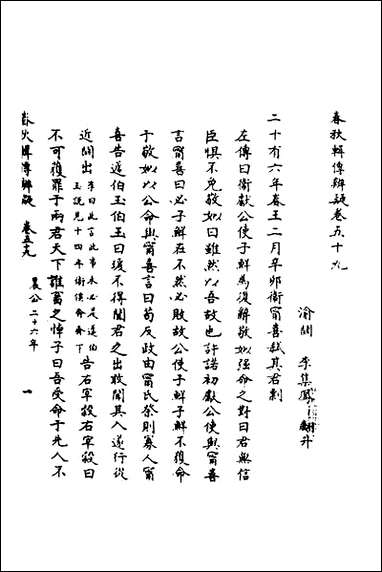 春秋輯傳辨疑卷五十九
渝關 李集鳳 翽升
二十有六年春王二月辛卯衛甯喜弑其君剽
左傳曰衛獻公使子鮮為復辭敬姒强命之對曰君無信
臣懼不免敬姒曰雖然以吾故也許諾初獻公使與甯喜
言甯喜曰必子鮮在不然必敗故公使子鮮子鮮不獲命
于敬姒以公命與甯喜言曰苟反政由甯氏祭則寡人甯
喜告蘧伯玉伯玉曰瑗不得聞君之出敢聞其入遂行從
近關出
李曰此言此事未必是蘧伯
玉説見十四年衛侯奔齊下
告右宰穀右宰穀曰
不可獲罪于兩君天下誰畜之悼子曰吾受命于先人不
春秋輯傳辨疑 卷五十九 襄公二十六年 一